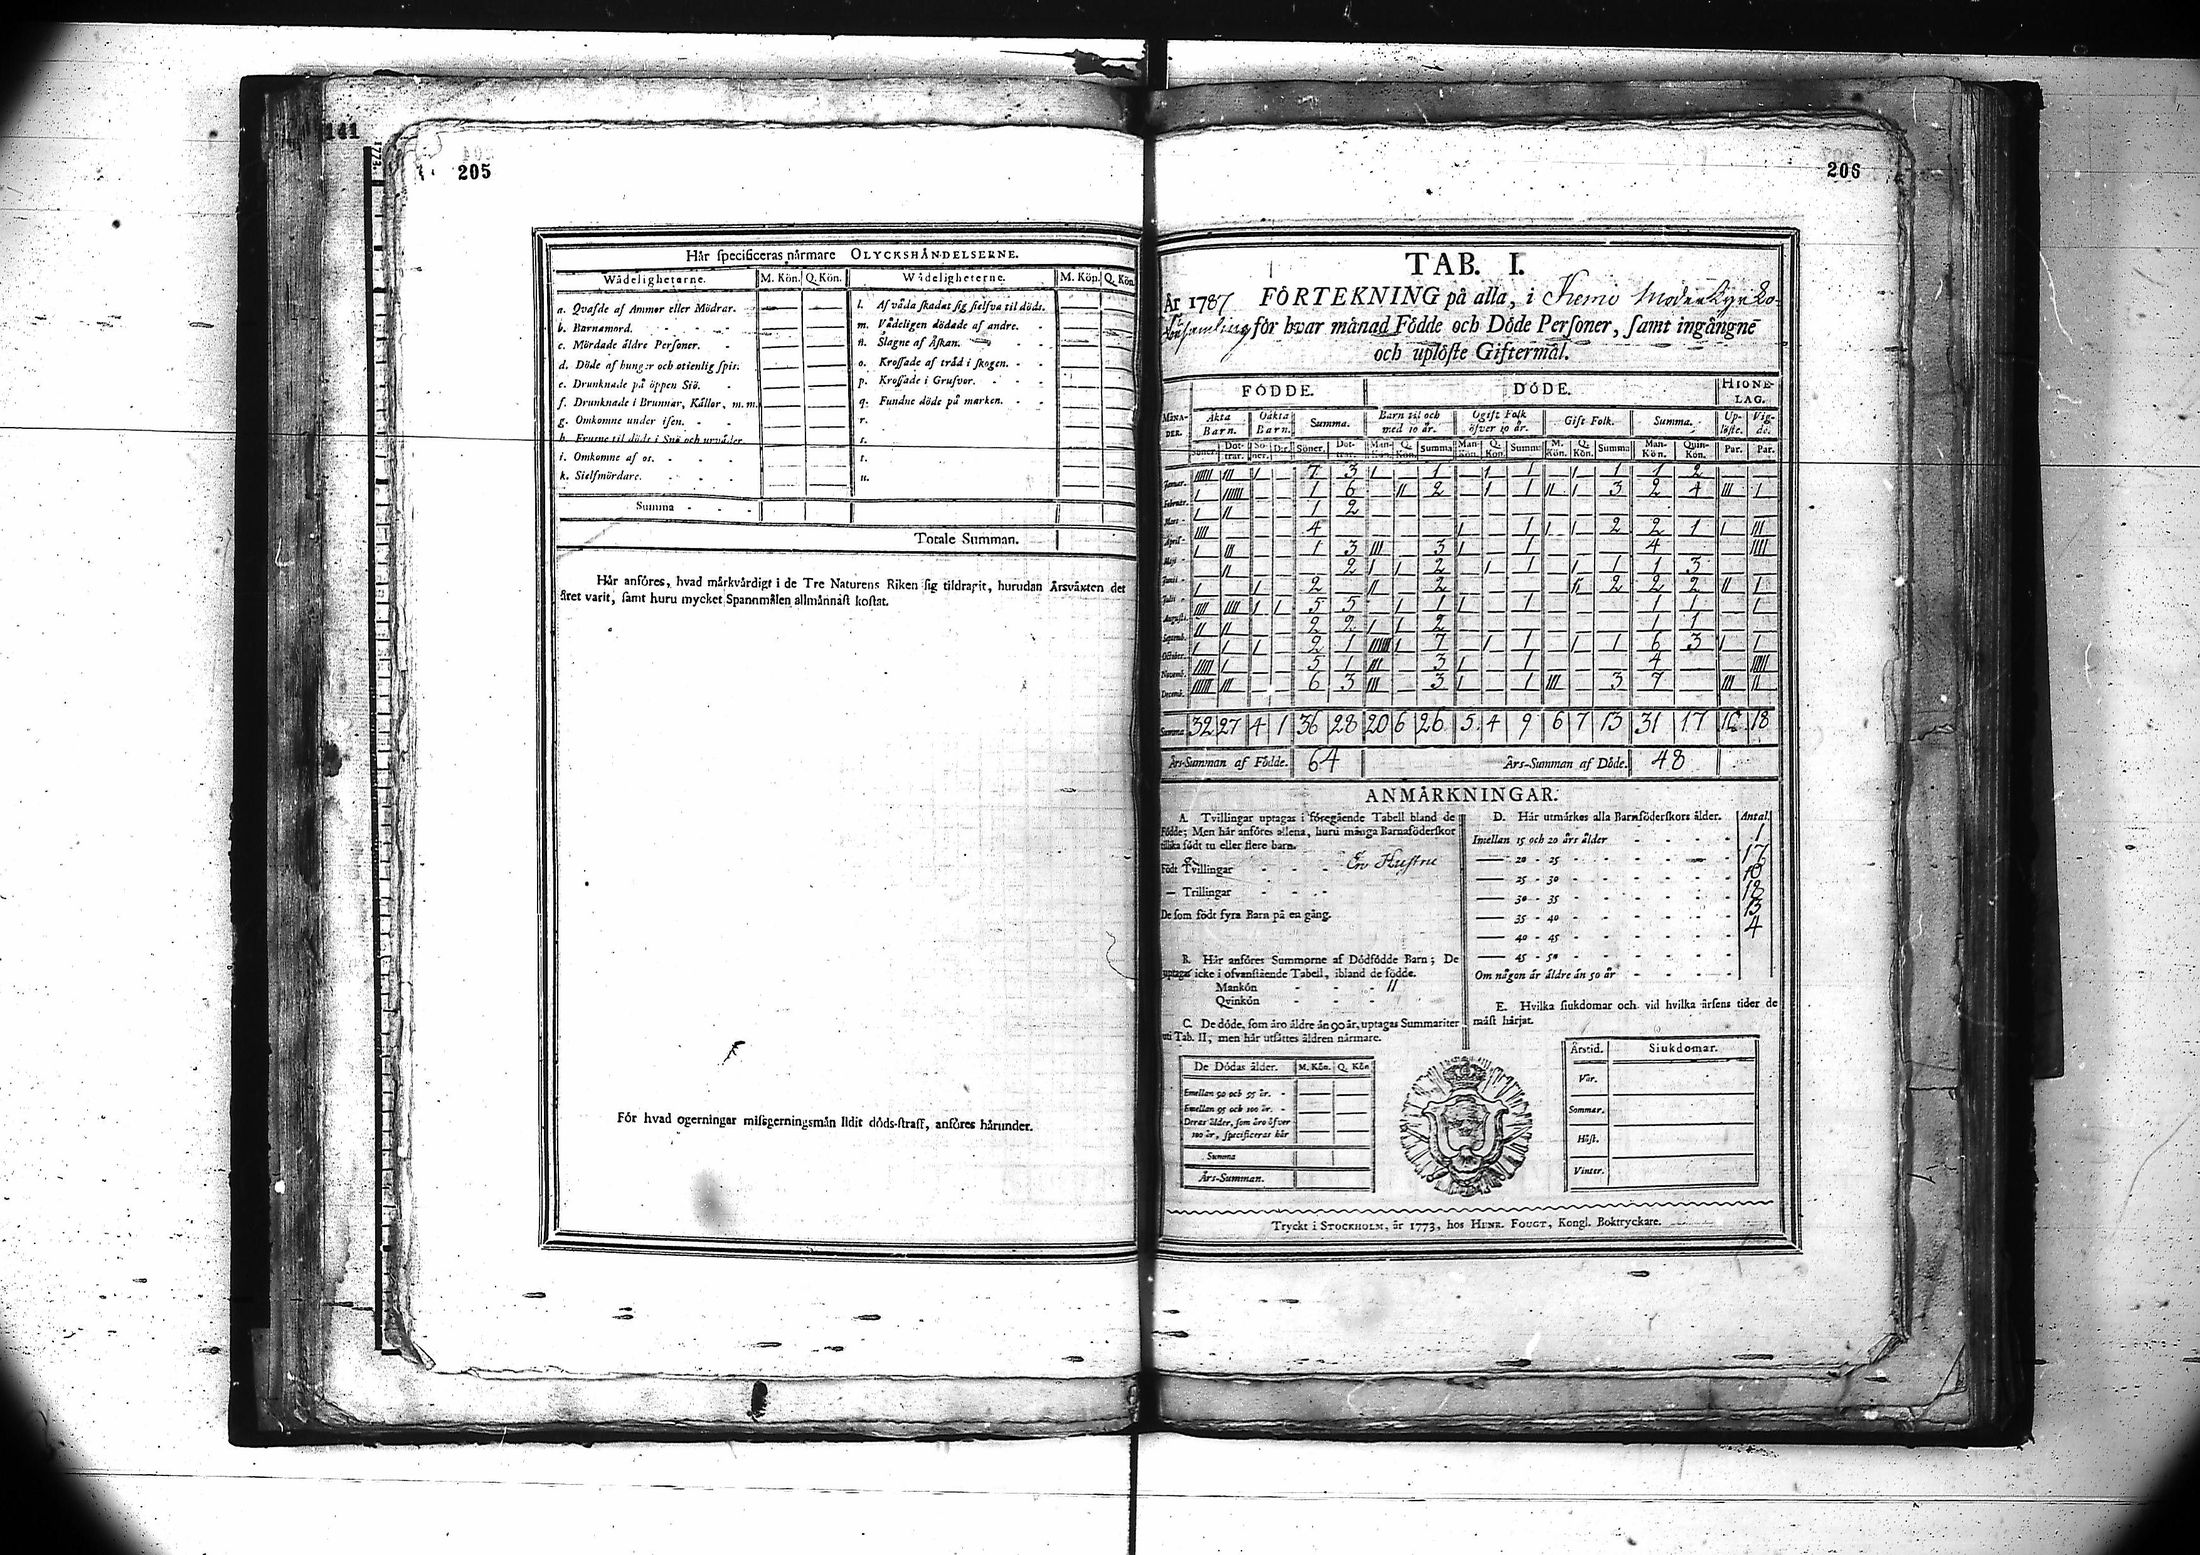 141
1773.
205
Här specificeras närmare OLYCKSHÄNDELSERNE.
Wådeligheterne. M. Kön. Q. Kön. Wådeligheterne. M. Kön. Q. Kön.
a. Qvafde af Ammor eller Mödrar. l. Af våda skadat sig sielfva til döds.
b. Barnamord. m. Vådeligen dödade af andre.
c. Mördade äldre Personer. n. Slagne af Åskan.
d. Döde af hunger och otienlig spis. o. Krossade af träd i skogen.
e. Drunknade på öppen Siö. p. Krossade i Grufvor.
f. Drunknade i Brunnar, Källor, m. m. q. Fundne döde på marken.
g. Omkomne under isen. r.
h. Frusne til döds i Snö och urväder. s.
i. Omkomne af os. t.
k. Sielfmördare. u.
Summa
Totale Summan.
Här anföres, hvad märkvärdigt i de Tre Naturens Riken sig tildragit, hurudan Årsväxten det
året varit, samt huru mycket Spannmålen allmännast kostat.
För hvad ogerningar missgerningsmän lidit döds-straff, anföres härunder.
206
TAB. I.
År 1787 FÖRTEKNING på alla, i Kemi Moderkyrko-
församling för hvar månad Födde och Döde Personer, samt ingångne
och uplöste Giftermål.
FÖDDE. DÖDE. HIONE-LAG.
MÅNA-DER. Äkta Barn. Oäkta Barn. Summa. Barn til och med 10 år. Ogift Folk öfver 10 år. Gift Folk. Summa. Up-löste. Vig-de.
Söner. Dot-trar. So-ner. D:r. Söner. Dot-trar. Man-Kön. Q. Kön. Summa Man-Kön. Q. Kön. Summa M. Kön. Q. Kön. Summa Man-Kön. Quin-Kön. Par. Par.
Januar. IIIII III I — 7 3 I — 1 — I 1 — I 1 1 2 — —
Februar. I IIIIII — — 1 6 — II 2 — I 1 II I 3 2 4 III I
Mart I II — — 1 2 — — — — — — — — — — — — —
April IIII — — — 4 — — — — I — 1 I I 2 2 1 I III
Maji I III — — 1 3 III — 3 I — 1 — — — 4 — — IIII
Junii — II — — — 2 I I 2 — I 1 — I 1 1 3 — —
Julii I — I — 2 — II — 2 — — — — II 2 2 2 II I
August. IIII IIII I I 5 5 — I 1 I — 1 — — — 1 1 — I
Septemb. II II — — 2 2 I I 2 — — — — — — 1 1 — —
October. I I I — 2 1 IIIIII I 7 — I 1 — I 1 6 3 I I
Novemb. IIIII I — — 5 1 III — 3 I — 1 — — — 4 — — IIIII
Decemb. IIIIII III — — 6 3 III — 3 I — 1 III — 3 7 — III II
Summa 32 27 4 1 36 28 20 6 26 5 4 9 6 7 13 31 17 10 18
Års-Summan af Födde. 64 Års-Summan af Döde. 48
ANMÄRKNINGAR.
A. Tvillingar uptagas i föregående Tabell bland de
Födde; Men här anföres allena, huru många Barnaföderskor
tillika födt tu eller flere barn.
Födt Tvillingar - - - En Hustru
— Trillingar
De som födt fyra Barn på en gång.
B. Här anföres Summorne af Dödfödde Barn; De
uptagas icke i ofvanstående Tabell, ibland de födde.
Mankön - - - II
Qvinkön - - -
C. De döde, som äro äldre än 90 år, uptagas Summariter
uti Tab. II, men här utsättes åldren närmare.
De Dödas ålder. M. Kön. Q. Kön
Emellan 90 och 95 år.
Emellan 95 och 100 år.
Deras ålder, som äro öfver
100 år, specificeras här
Summa
Års-Summan.
D. Här utmärkes alla Barnföderskors ålder. Antal.
Imellan 15 och 20 års ålder 1
— 20 - 25 17
— 25 - 30 18
— 30 - 35 12
— 35 - 40 13
— 40 - 45 4
— 45 - 50
Om någon är äldre än 50 år
E. Hvilka siukdomar och vid hvilka årsens tider de
mäst härjat.
Årstid. Siukdomar.
Vår.
Sommar.
Höst.
Vinter.
Tryckt i STOCKHOLM, år 1773, hos HENR. FOUGT, Kongl. Boktryckare.